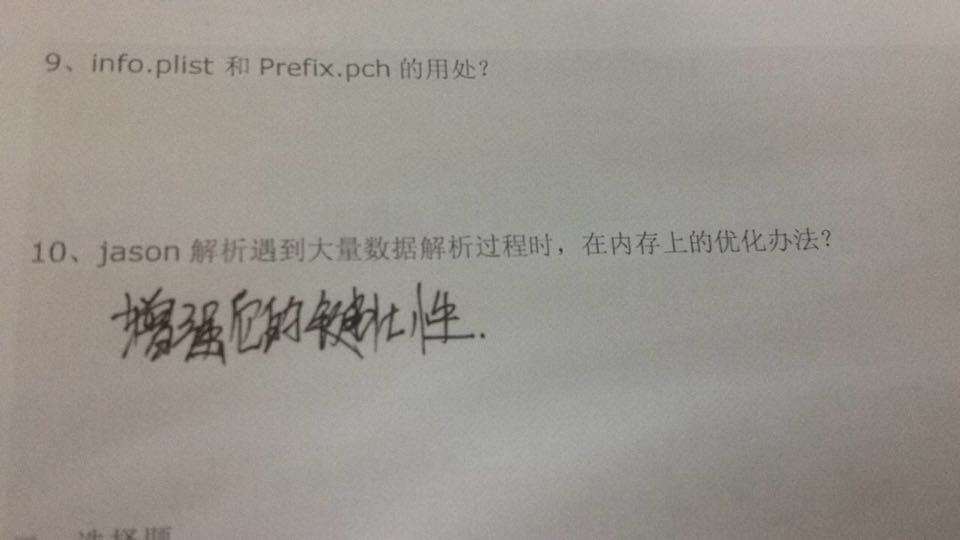 9、info.plist 和 Prefix.pch 的用处？
10、jason 解析遇到大量数据解析过程时，在内存上的优化办法？
增强它的健壮性.
选择题